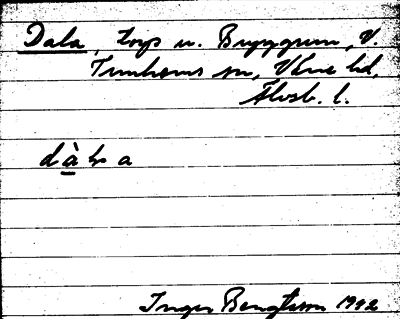 Dala, torp u. Bryggum, V.
Tunhems sn, Väne hd,
Älvsb. l.
dàla
Inger Bengtsson 1942